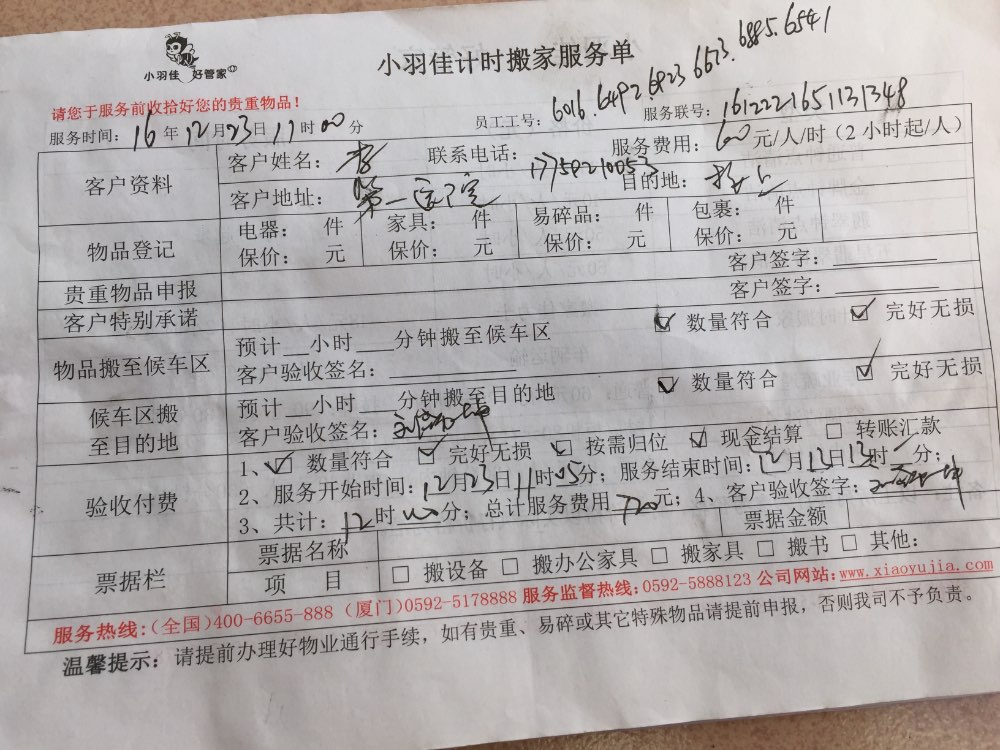 小羽佳 好管家
小羽佳计时搬家服务单
6016.6492.6823.6673.6885.6541
请您于服务前收拾好您的贵重物品!
服务时间: 16年12月23日11时00分 员工工号: 服务联号: 1612221651131348
客户资料 客户姓名: 李 联系电话: 17750210053 服务费用: 60元/人/时(2小时起/人)
客户地址: 第一医院 目的地:
物品登记 电器: 件 家具: 件 易碎品: 件 包裹: 件
保价: 元 保价: 元 保价: 元 保价: 元
贵重物品申报 客户签字:
客户特别承诺 客户签字:
物品搬至候车区 预计__小时___分钟搬至候车区 ☑ 数量符合 ☑ 完好无损
客户验收签名:
候车区搬至目的地 预计__小时___分钟搬至目的地 ☑ 数量符合 ☑ 完好无损
客户验收签名:
验收付费 1、☑ 数量符合 ☑ 完好无损 ☑ 按需归位 ☑ 现金结算 □ 转账汇款
2、服务开始时间: 12月23日11时05分; 服务结束时间: 12月13日13时 分;
3、共计: 12时00分; 总计服务费用720元; 4、客户验收签字:
票据栏 票据名称 票据金额
项 目 □ 搬设备 □ 搬办公家具 □ 搬家具 □ 搬书 □ 其他:
服务热线:(全国)400-6655-888(厦门)0592-5178888 服务监督热线:0592-5888123 公司网站:www.xiaoyujia.com
温馨提示: 请提前办理好物业通行手续,如有贵重、易碎或其它特殊物品请提前申报,否则我司不予负责。